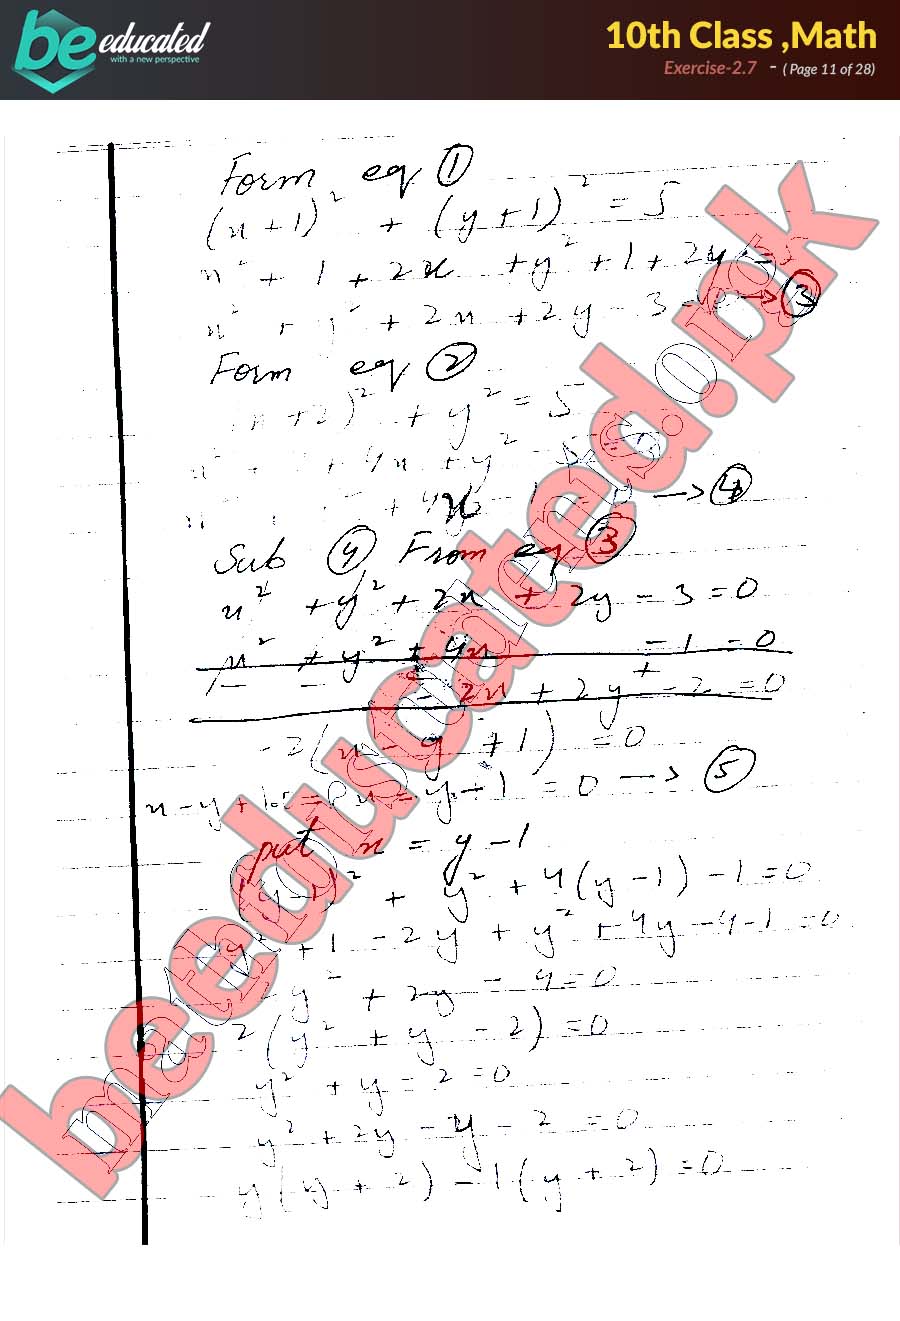 be educated
with a new perspective
10th Class ,Math
Exercise-2.7 - ( Page 11 of 28)
Form eq ①
(x+1)² + (y+1)² = 5
x² + 1 + 2x + y² + 1 + 2y = 5
x² + y² + 2x + 2y - 3 = 0 → ③
Form eq ②
(x+2)² + y² = 5
x² + + 4x + y² - 5 =
+ 4x - 1 = 0 → ④
Sub ④ From eq ③
x² + y² + 2x + 2y - 3 = 0
x² + y² + 4x - 1 = 0
- - - +
- 2x + 2y - 2 = 0
-2(x - y + 1) = 0
x - y + 1 = 0 x - y + 1 = 0 → ⑤
put x = y - 1
(y-1)² + y² + 4(y-1) - 1 = 0
y² + 1 - 2y + y² + 4y - 4 - 1 = 0
2y² + 2y - 4 = 0
2(y² + y - 2) = 0
y² + y - 2 = 0
y² + 2y - y - 2 = 0
y(y+2) - 1(y+2) = 0
beeducated.pk